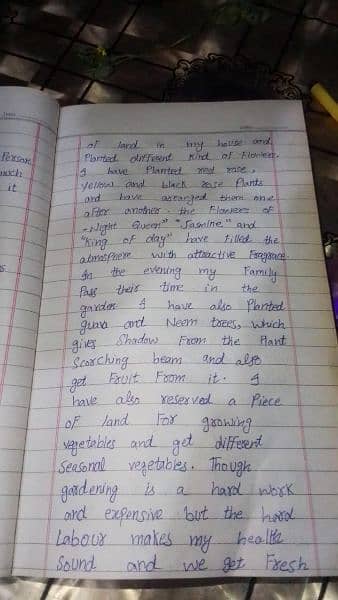 Person
much
it
of land in my house and
Planted different Kind of Flowers.
I have Planted red rose,
yellow and black rose Plants
and have arranged them one
after another. the Flowers of
"Night Queen" "Jasmine" and
"King of day" have filled the
atmosphere with attractive Fragrance.
In the evening my Family
Pass their time in the
garden I have also Planted
guava and Neem trees, which
gives Shadow From the Hant
Scorching beam and also
get Fruit From it. I
have also reserved a Piece
of land For growing
vegetables and get different
Seasonal vegetables. Though
gardening is a hard work
and expensive but the hard
Labour makes my health
Sound and we get Fresh